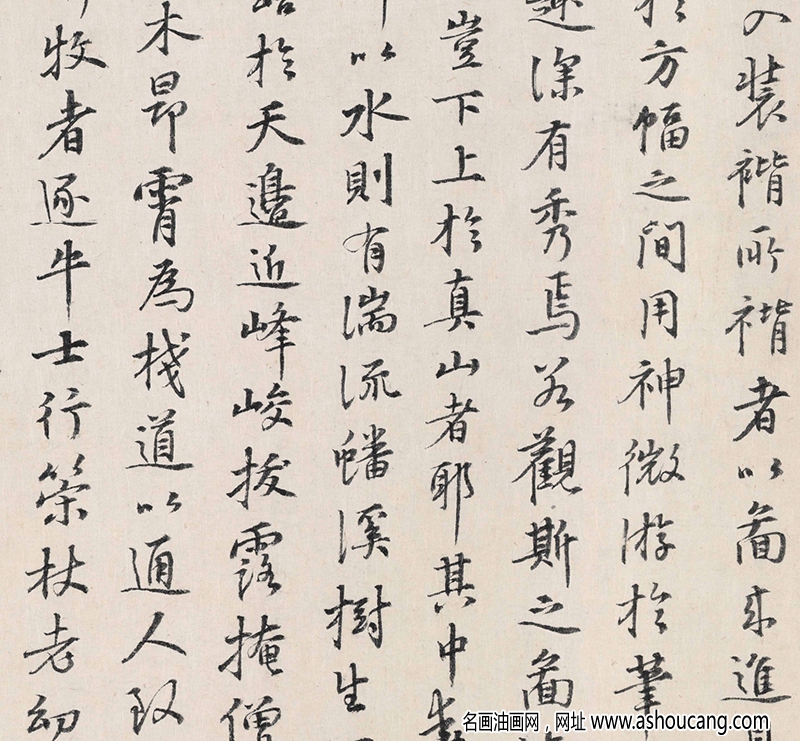 裝褙所褙者以啚来進
方幅之間用神微游於筆
深有秀焉若觀斯之啚
豈下上於真山者耶其中
以水則有湍流蟠溪樹生
於天邉近峰峻拔露掩僧
木昂霄為棧道以通人致
牧者逐牛士行策杖老幼
名画油画网，网址 www.ashoucang.com